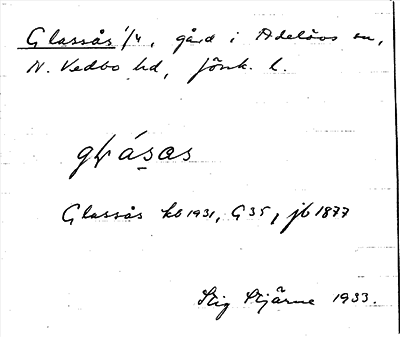 Glassås 1/4, gård i Adelövs sn,
N. Vedbo hd, Jönk. l.
Glassås kb 1931, G35, jb 1877
Stig Stjärne 1933.